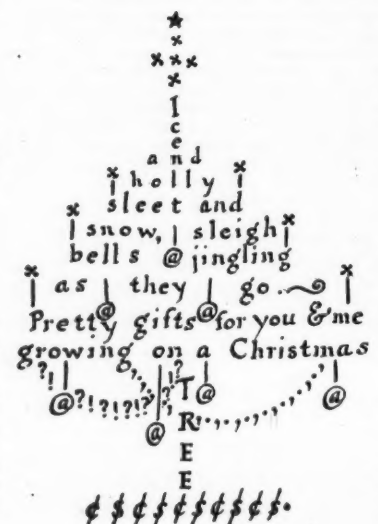 ★
x
x x x
x
I
c
e
and
holly
sleet and
snow, sleigh
bells @ jingling
as they go
@ @
Pretty gifts for you & me
growing on a Christmas
?!?!?!?!?!?
@ @ @ @
T
R
E
E
¢ $ ¢ $ ¢ $ ¢ $ ¢ $.